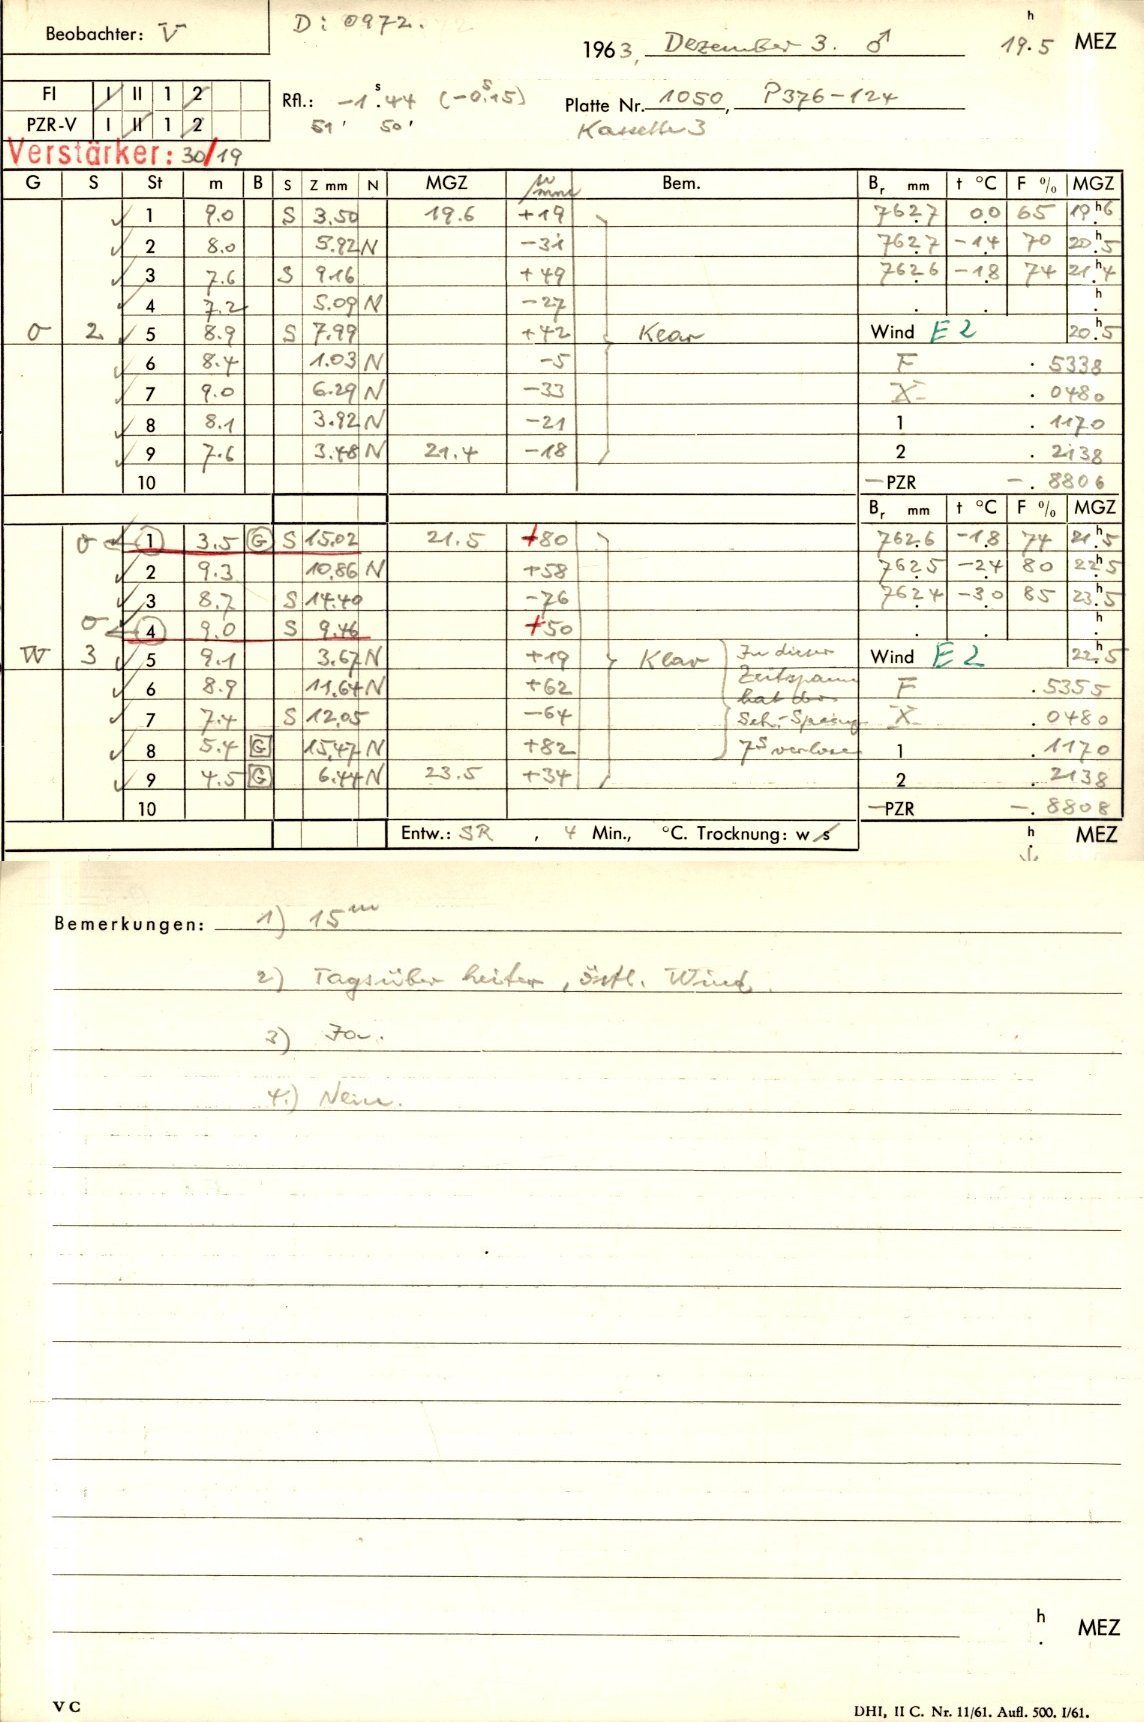 Beobachter: V
D: 0972.
1963, Dezember 3. ♂ 19.5 h MEZ
FI I II 1 2
PZR-V I II 1 2
Rfl.: -1 s.44 (-0 s.15)
51' 50'
Platte Nr. 1050, P376-124
Kassette 3
Verstärker: 30/19
G S St m B S Z mm N MGZ Bem. Br mm t °C F % MGZ
✓ 1 9.0 S 3.50 19.6 +19 762.7 0.0 65 19h.6
✓ 2 8.0 5.92 N -31 762.7 -1.4 70 20h.5
✓ 3 7.6 S 9.16 +49 762.6 -1.8 74 21h.4
✓ 4 7.2 5.09 N -27 . . h.
O 2 ✓ 5 8.9 S 7.99 +42 Klar Wind E 2 20h.5
✓ 6 8.4 1.03 N -5 F . 5338
✓ 7 9.0 6.29 N -33 X . 0480
✓ 8 8.1 3.92 N -21 1 . 1170
✓ 9 7.6 3.48 N 21.4 -18 2 . 2138
10 -PZR -. 8806
Br mm t °C F % MGZ
1 3.5 G S 15.02 21.5 +80 762.6 -1.8 74 21h.5
✓ 2 9.3 10.86 N +58 762.5 -2.4 80 22h.5
✓ 3 8.7 S 14.40 -76 762.4 -3.0 85 23h.5
4 9.0 S 9.46 +50 . . h.
W 3 ✓ 5 9.1 3.67 N +19 Klar In dieser Wind E 2 22h.5
✓ 6 8.9 11.64 N +62 Zeitspann F . 5355
✓ 7 7.4 S 12.05 -64 hat der X . 0480
✓ 8 5.4 G 15.47 N +82 7 s verloren 1 . 1170
✓ 9 4.5 G 6.44 N 23.5 +34 2 . 2138
10 -PZR -. 8808
Entw.: SR , 4 Min., °C. Trocknung: w/s h. MEZ
Bemerkungen: 1) 15 m
2) Tagsüber heiter, östl. Wind.
3) Ja.
4.) Nein.
h. MEZ
V C
DHI, II C. Nr. 11/61. Aufl. 500. I/61.